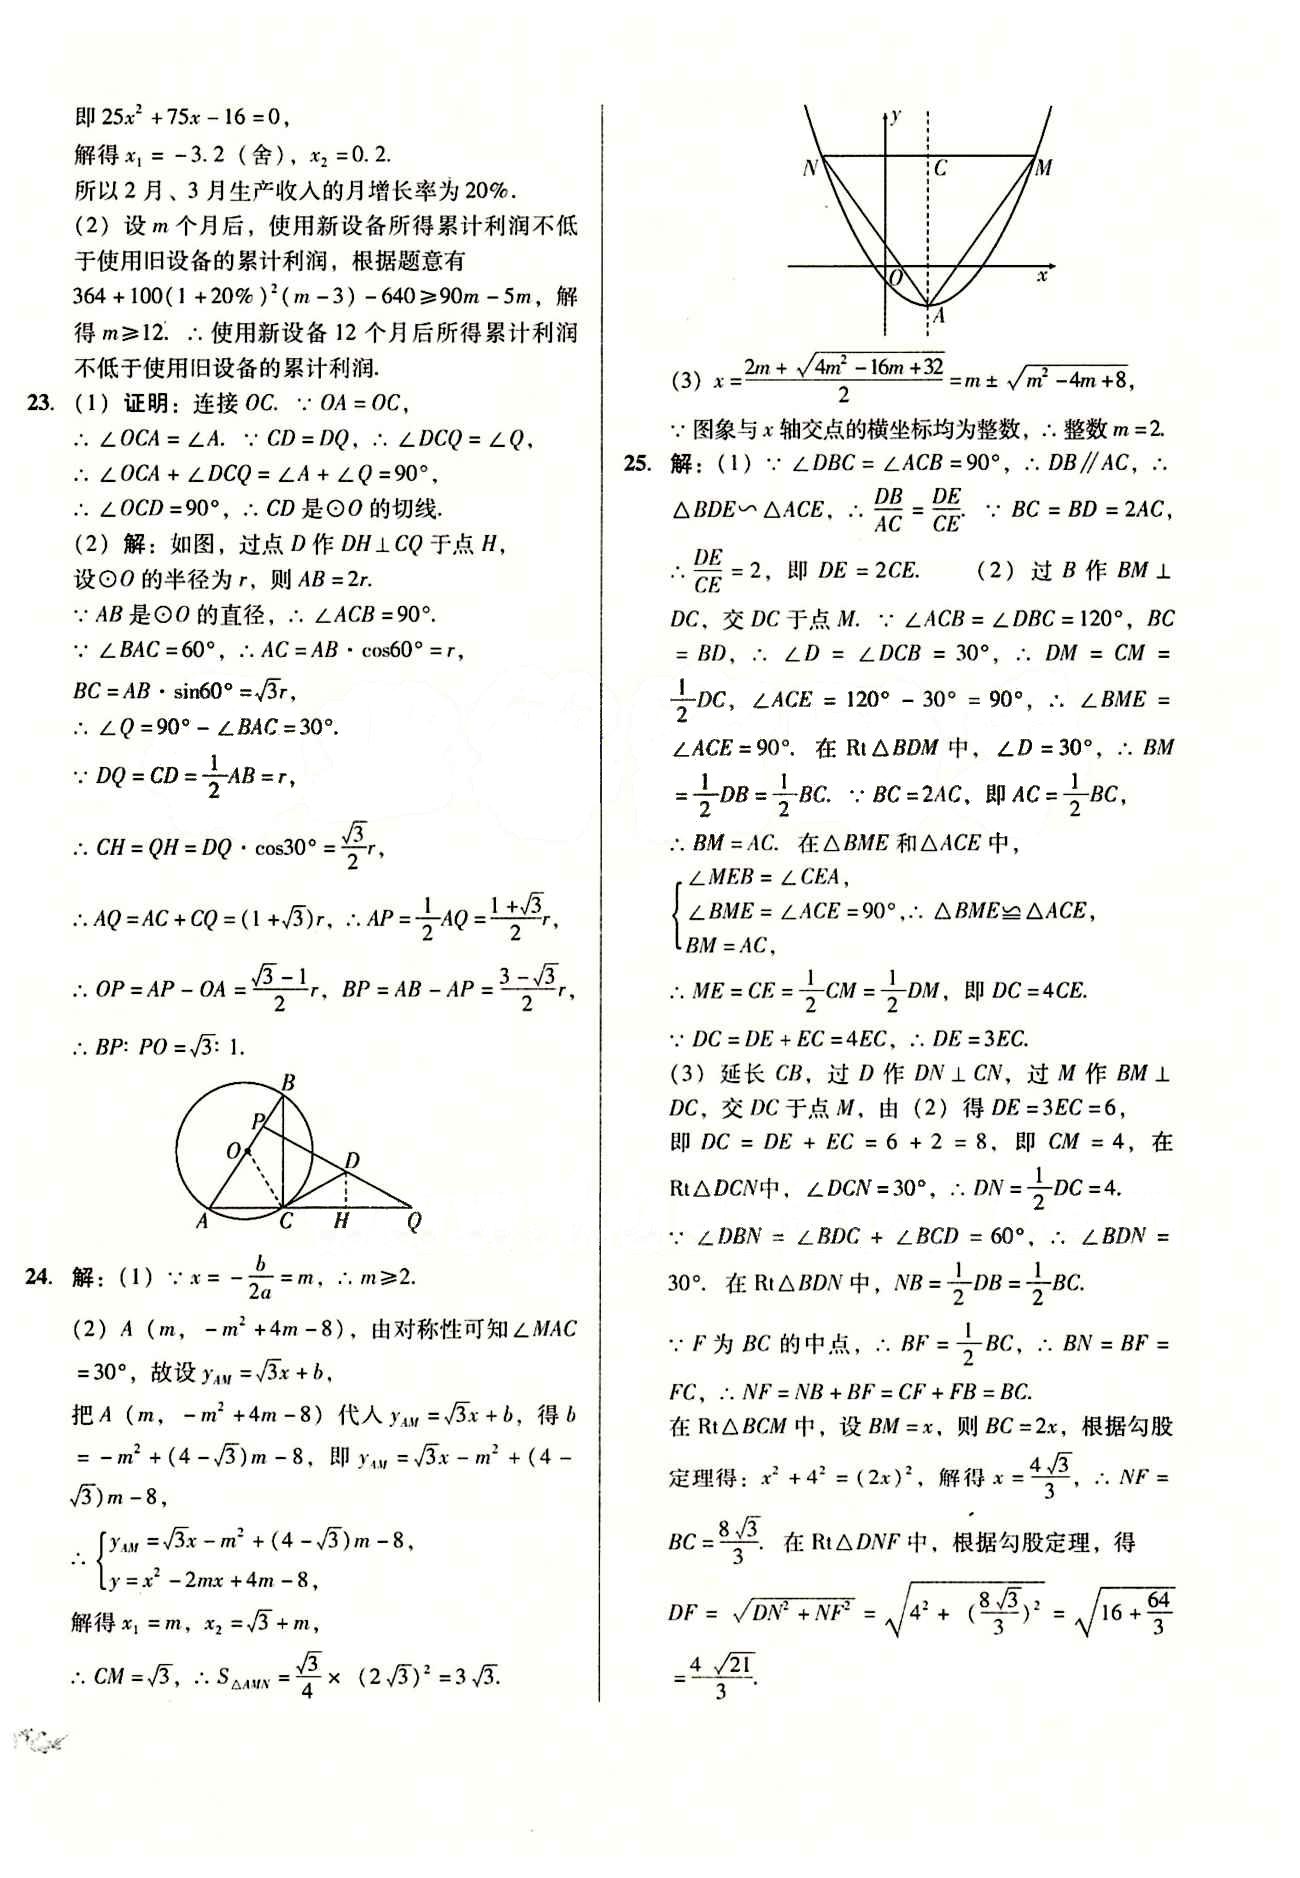 即 25x² + 75x - 16 = 0,
解得 x₁ = -3.2 (舍), x₂ = 0.2.
所以 2 月、3 月生产收入的月增长率为 20%.
(2) 设 m 个月后, 使用新设备所得累计利润不低
于使用旧设备的累计利润, 根据题意有
364 + 100(1 + 20%)²(m - 3) - 640 ≥ 90m - 5m, 解
得 m ≥ 12. ∴ 使用新设备 12 个月后所得累计利润
不低于使用旧设备的累计利润.
23. (1) 证明: 连接 OC. ∵ OA = OC,
∴ ∠OCA = ∠A. ∵ CD = DQ, ∴ ∠DCQ = ∠Q,
∴ ∠OCA + ∠DCQ = ∠A + ∠Q = 90°,
∴ ∠OCD = 90°, ∴ CD 是⊙O 的切线.
(2) 解: 如图, 过点 D 作 DH⊥CQ 于点 H,
设⊙O 的半径为 r, 则 AB = 2r.
∵ AB 是⊙O 的直径, ∴ ∠ACB = 90°.
∵ ∠BAC = 60°, ∴ AC = AB · cos60° = r,
BC = AB · sin60° = √3r,
∴ ∠Q = 90° - ∠BAC = 30°.
∵ DQ = CD = 1/2 AB = r,
∴ CH = QH = DQ · cos30° = √3/2 r,
∴ AQ = AC + CQ = (1 + √3)r, ∴ AP = 1/2 AQ = (1 + √3)/2 r,
∴ OP = AP - OA = (√3 - 1)/2 r, BP = AB - AP = (3 - √3)/2 r,
∴ BP: PO = √3: 1.
B
P
O
D
A
C
H
Q
24. 解: (1) ∵ x = - b/2a = m, ∴ m ≥ 2.
(2) A (m, -m² + 4m - 8), 由对称性可知∠MAC
= 30°, 故设 y_AM = √3x + b,
把 A (m, -m² + 4m - 8) 代入 y_AM = √3x + b, 得 b
= -m² + (4 - √3)m - 8, 即 y_AM = √3x - m² + (4 -
√3)m - 8,
∴ { y_AM = √3x - m² + (4 - √3)m - 8,
y = x² - 2mx + 4m - 8,
解得 x₁ = m, x₂ = √3 + m,
∴ CM = √3, ∴ S△AMN = √3/4 × (2√3)² = 3√3.
y
N
C
M
O
x
A
(3) x = (2m + √(4m² - 16m + 32))/2 = m ± √(m² - 4m + 8),
∵ 图象与 x 轴交点的横坐标均为整数, ∴ 整数 m = 2.
25. 解: (1) ∵ ∠DBC = ∠ACB = 90°, ∴ DB∥AC, ∴
△BDE∽△ACE, ∴ DB/AC = DE/CE. ∵ BC = BD = 2AC,
∴ DE/CE = 2, 即 DE = 2CE. (2) 过 B 作 BM⊥
DC, 交 DC 于点 M. ∵ ∠ACB = ∠DBC = 120°, BC
= BD, ∴ ∠D = ∠DCB = 30°, ∴ DM = CM =
1/2 DC, ∠ACE = 120° - 30° = 90°, ∴ ∠BME =
∠ACE = 90°. 在 Rt△BDM 中, ∠D = 30°, ∴ BM
= 1/2 DB = 1/2 BC. ∵ BC = 2AC, 即 AC = 1/2 BC,
∴ BM = AC. 在△BME 和△ACE 中,
{ ∠MEB = ∠CEA,
∠BME = ∠ACE = 90°, ∴ △BME≌△ACE,
BM = AC,
∴ ME = CE = 1/2 CM = 1/2 DM, 即 DC = 4CE.
∵ DC = DE + EC = 4EC, ∴ DE = 3EC.
(3) 延长 CB, 过 D 作 DN⊥CN, 过 M 作 BM⊥
DC, 交 DC 于点 M, 由 (2) 得 DE = 3EC = 6,
即 DC = DE + EC = 6 + 2 = 8, 即 CM = 4, 在
Rt△DCN中, ∠DCN = 30°, ∴ DN = 1/2 DC = 4.
∵ ∠DBN = ∠BDC + ∠BCD = 60°, ∴ ∠BDN =
30°. 在 Rt△BDN 中, NB = 1/2 DB = 1/2 BC.
∵ F 为 BC 的中点, ∴ BF = 1/2 BC, ∴ BN = BF =
FC, ∴ NF = NB + BF = CF + FB = BC.
在 Rt△BCM 中, 设 BM = x, 则 BC = 2x, 根据勾股
定理得: x² + 4² = (2x)², 解得 x = 4√3/3, ∴ NF =
BC = 8√3/3. 在 Rt△DNF 中, 根据勾股定理, 得
DF = √(DN² + NF²) = √(4² + (8√3/3)²) = √(16 + 64/3)
= 4√21/3.